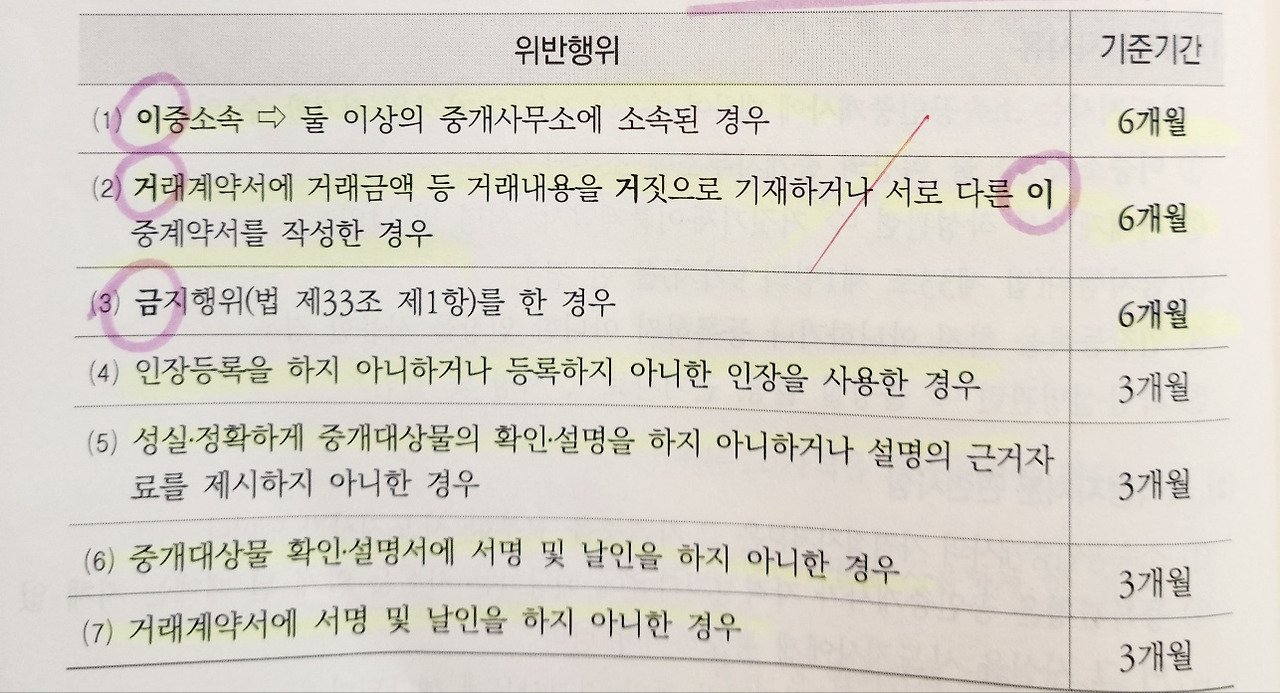 위반행위 기준기간
(1) 이중소속 ⇨ 둘 이상의 중개사무소에 소속된 경우 6개월
(2) 거래계약서에 거래금액 등 거래내용을 거짓으로 기재하거나 서로 다른 이
중계약서를 작성한 경우 6개월
(3) 금지행위(법 제33조 제1항)를 한 경우 6개월
(4) 인장등록을 하지 아니하거나 등록하지 아니한 인장을 사용한 경우 3개월
(5) 성실·정확하게 중개대상물의 확인·설명을 하지 아니하거나 설명의 근거자
료를 제시하지 아니한 경우 3개월
(6) 중개대상물 확인·설명서에 서명 및 날인을 하지 아니한 경우 3개월
(7) 거래계약서에 서명 및 날인을 하지 아니한 경우 3개월